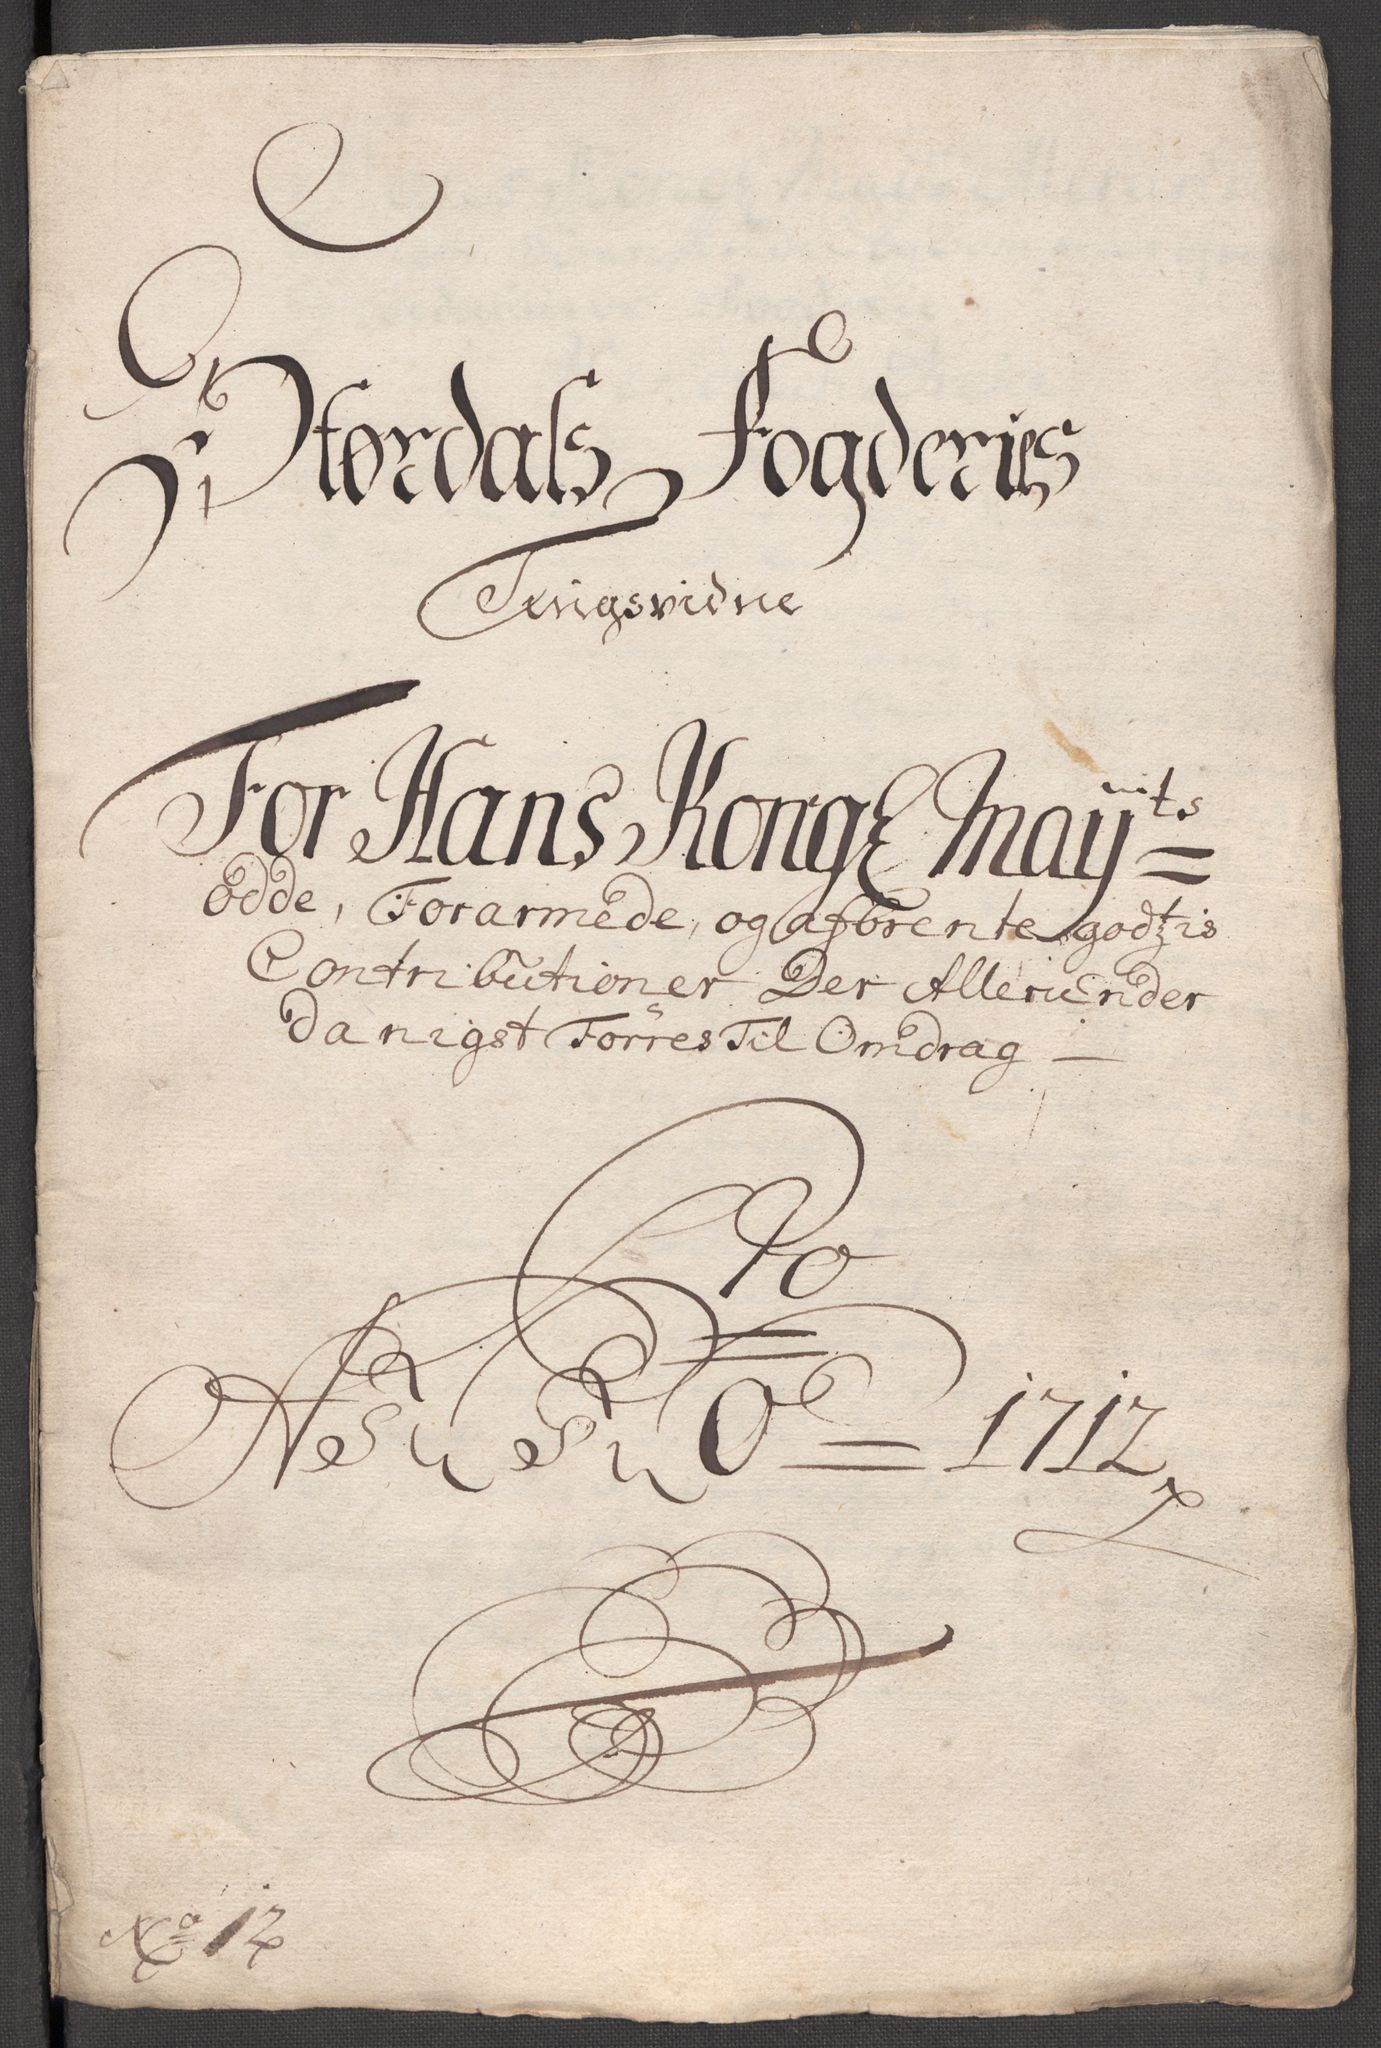 Størdals Fogderies
Tingsvidne
For Hans Kongl Mayts
ödde, Forarmede, og afbrente godtzis
Contributioner Der Allerunder
danigst Førres Til Omdrag —
Po
1712
No 12